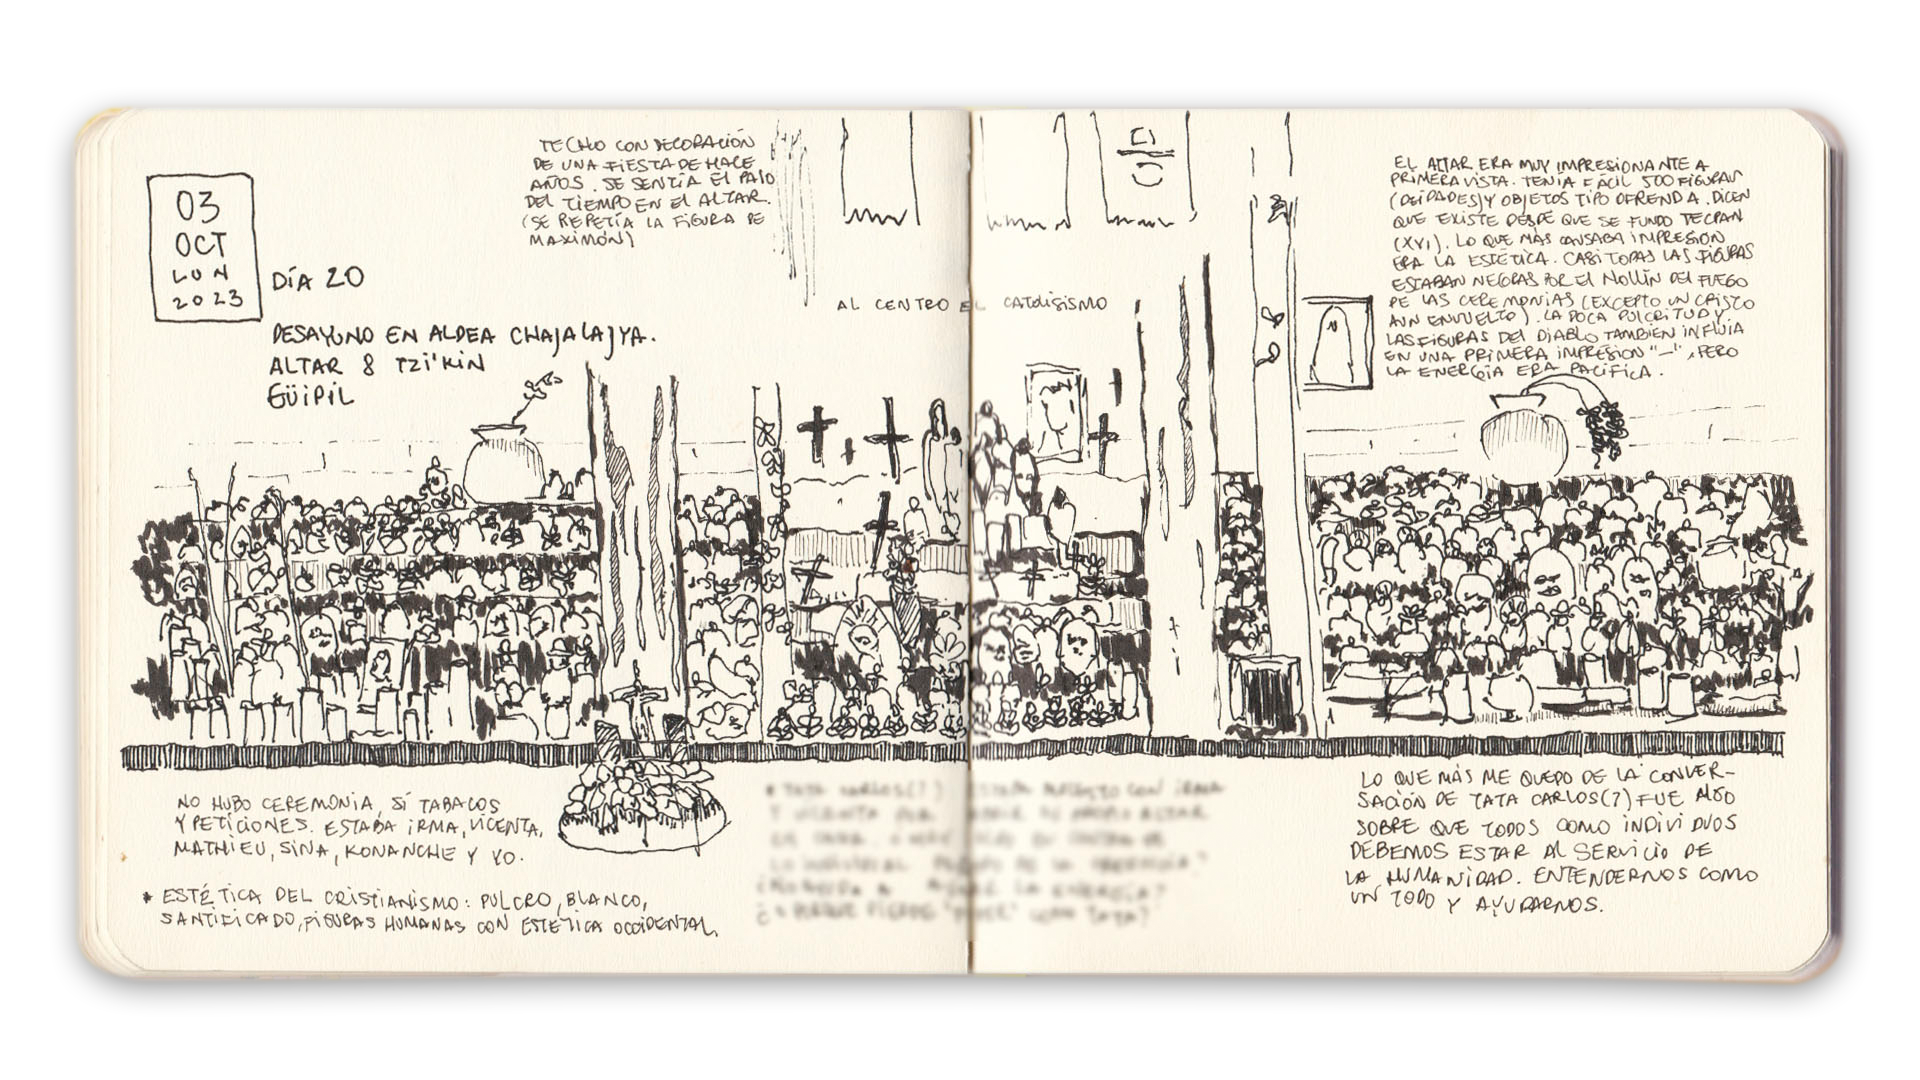 03
OCT
LUN
2023
DÍA 20
DESAYUNO EN ALDEA CHAJALAJYA.
ALTAR 8 TZI'KIN
GÜIPIL
TECHO CON DECORACIÓN
DE UNA FIESTA DE HACE
AÑOS. SE SENTÍA EL PASO
DEL TIEMPO EN EL ALTAR.
(SE REPETÍA LA FIGURA DE
MAXIMÓN)
AL CENTRO EL CATOLISISMO
EL ALTAR ERA MUY IMPRESIONANTE A
PRIMERA VISTA. TENIA FÁCIL 500 FIGURAS
(DEIDADES) Y OBJETOS TIPO OFRENDA. DICEN
QUE EXISTE DESDE QUE SE FUNDO TECPAN
(XVI). LO QUE MÁS CAUSABA IMPRESIÓN
ERA LA ESTÉTICA. CASI TODAS LAS FIGURAS
ESTABAN NEGRAS POR EL HOLLÍN DEL FUEGO
DE LAS CEREMONIAS (EXCEPTO UN CRISTO
AUN ENVUELTO). LA POCA PULCRITUD Y
LAS FIGURAS DEL DIABLO TAMBIEN INFLUÍA
EN UNA PRIMERA IMPRESIÓN "—", PERO
LA ENERGÍA ERA PACÍFICA.
NO HUBO CEREMONIA, SÍ TABACOS
Y PETICIONES. ESTABA IRMA, VICENTA,
MATHIEU, SINA, KONANCHE Y YO.
* ESTÉTICA DEL CRISTIANISMO: PULCRO, BLANCO,
SANTIFICADO, FIGURAS HUMANAS CON ESTÉTICA OCCIDENTAL.
LO QUE MÁS ME QUEDO DE LA CONVER-
SACIÓN DE TATA CARLOS(?) FUE ALGO
SOBRE QUE TODOS COMO INDIVIDUOS
DEBEMOS ESTAR AL SERVICIO DE
LA HUMANIDAD. ENTENDERNOS COMO
UN TODO Y AYUDARNOS.